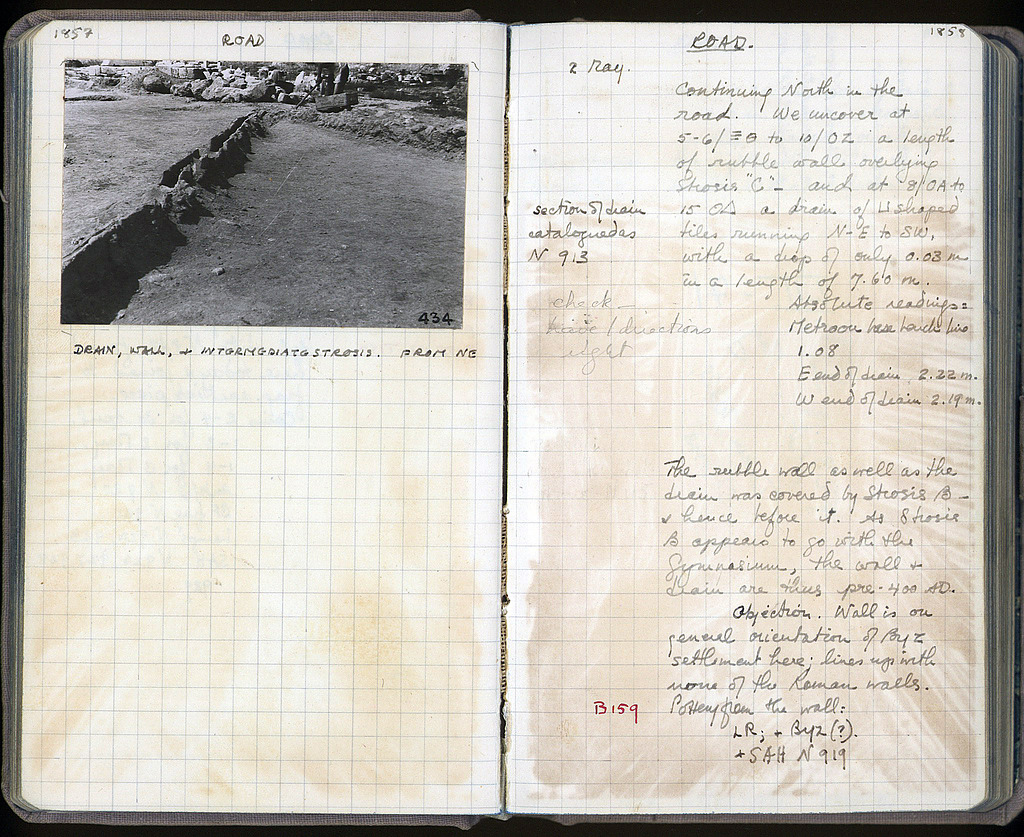 1857
ROAD
434
DRAIN, WALL, + INTERMEDIATE STROSIS. FROM NE
1858
ROAD.
2 May.
Continuing North in the
road. We uncover at
5-6/ΞΘ to 10/ΟΖ a length
of rubble wall overlying
Strosis "C" - and at 8/ΟΑ to
15 ΟΔ a drain of U shaped
tiles running N-E to SW,
with a drop of only 0.03 m
in a length of 7.60 m.
Absolute readings:
Metroon base bench line
1.08
E end of drain 2.22 m.
W end of drain 2.19 m.
section of drain
catalogued as
N 913
check -
have / directions
right
The rubble wall as well as the
drain was covered by Strosis B -
+ hence before it. As Strosis
B appears to go with the
Gymnasium, the wall +
drain are thus pre-400 AD.
Objection. Wall is on
general orientation of Byz
settlement here; lines up with
none of the Roman walls.
B159
Pottery from the wall:
LR; + Byz (?).
+ SAH N 919